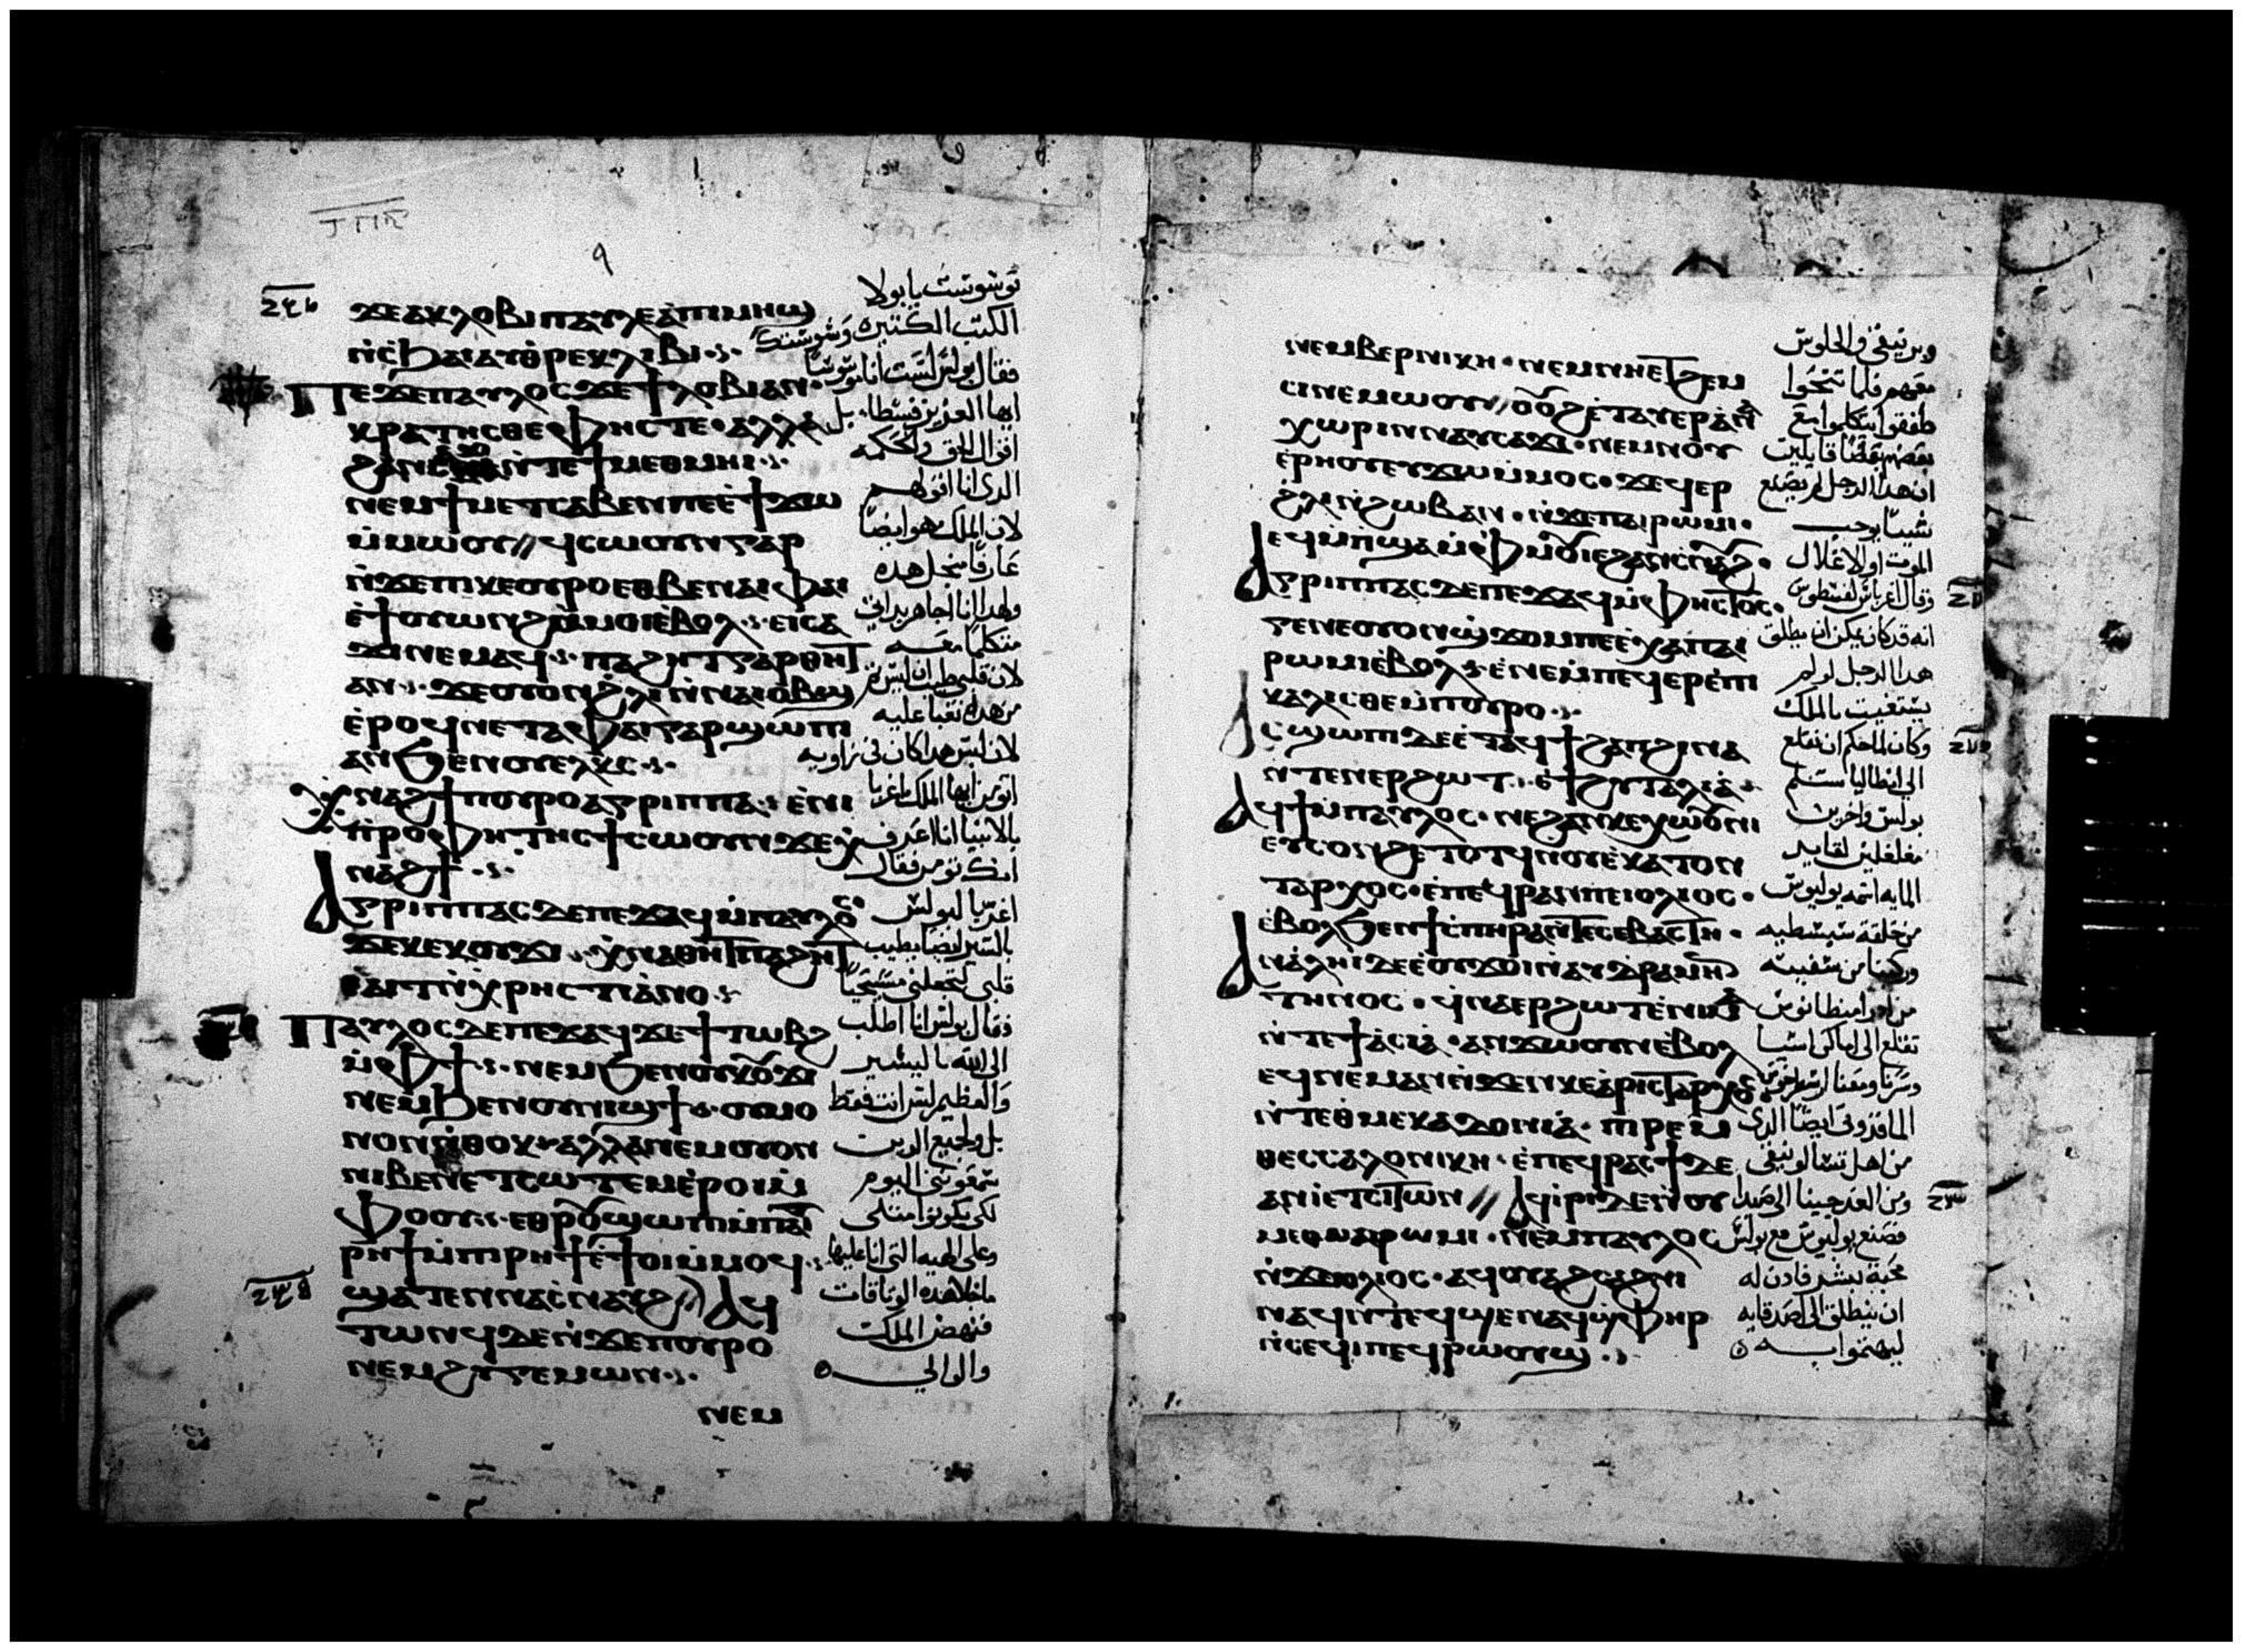 ϫⲉ ⲁⲕⲗⲟⲃⲓ ⲡⲁⲩⲗⲉ ⲁ ⲡⲓⲙⲏϣ
ⲛ̀ⲥϧⲁⲓ ⲁⲩⲑⲣⲉⲕⲗⲓⲃⲓ
ⲡⲉϫⲉ ⲡⲁⲩⲗⲟⲥ ϫⲉ ϯⲗⲟⲃⲓ ⲁⲛ
ⲕⲣⲁⲧⲏⲥⲑⲉ ⲫⲏⲥⲧⲉ ⲁⲗⲗⲁ
ϩⲁⲛⲥⲁϫⲓ ⲛ̀ⲧⲉ ϯⲙⲉⲑⲙⲏⲓ
ⲛⲉⲙ ϯⲙⲉⲧⲥⲁⲃⲉ ⲛⲡⲉ ⲉ̀ϯϫⲱ
ⲙ̀ⲙⲱⲟⲩ ϥⲥⲱⲟⲩⲛ ⲅⲁⲣ
ⲛ̀ϫⲉ ⲡⲓⲕⲉⲟⲩⲣⲟ ⲉⲑⲃⲉ ⲛⲁⲓ ⲫⲁⲓ
ⲉ̀ϯⲟⲩⲱⲛϩ ⲙ̀ⲙⲟⲓ ⲉ̀ⲃⲟⲗ ⲉⲓⲥⲁ
ϫⲓ ⲛⲉⲙⲁϥ ⲡⲁϩⲏⲧ ⲅⲁⲣ ⲑⲏⲧ
ⲁⲛ ϫⲉ ⲟⲩⲟⲛ ϩ̀ⲗⲓ ⲛ̀ⲛⲁⲓ ⲟⲃϣ
ⲉ̀ⲣⲟϥ ⲛⲉⲧⲁ ⲫⲁⲓ ⲅⲁⲣ ϣⲱⲡⲓ
ⲁⲛ ϧⲉⲛ ⲟⲩⲉⲗϫⲥ
ⲭⲛⲁϩϯ ⲡⲟⲩⲣⲟ ⲁⲅⲣⲓⲡⲡⲁ ⲉ̀ⲛⲓ
ⲡⲣⲟⲫⲏⲧⲏⲥ ϯⲥⲱⲟⲩⲛ ϫⲉ ⲭ̀
ⲛⲁϩϯ
ⲁⲅⲣⲓⲡⲡⲁⲥ ⲇⲉ ⲡⲉϫⲁϥ ⲙ̀ⲡⲁⲩⲗⲟⲥ
ϫⲉ ⲕⲉⲕⲟⲩϫⲓ ⲭ̀ⲛⲁⲑⲏⲧ ⲡⲁϩⲏⲧ
ⲉⲁⲓⲧ ⲛ̀ⲭⲣⲏⲥⲧⲓⲁⲛⲟ
ⲡⲁⲩⲗⲟⲥ ⲇⲉ ⲡⲉϫⲁϥ ϫⲉ ϯⲧⲱⲃϩ
ⲙ̀ⲫϯ ⲛⲉⲙ ϧⲉⲛ ⲟⲩⲕⲟⲩϫⲓ
ⲛⲉⲙ ϧⲉⲛ ⲟⲩⲛⲓϣϯ ⲟⲩ ⲙⲟ
ⲛⲟⲛ ⲛ̀ⲑⲟⲕ ⲁⲗⲗⲁ ⲛⲉⲙ ⲟⲩⲟⲛ
ⲛⲓⲃⲉⲛ ⲉⲧⲥⲱⲧⲉⲙ ⲉ̀ⲣⲟⲓ ⲙ̀
ⲫⲟⲟⲩ ⲉⲑⲣⲟⲩϣⲱⲡⲓ ⲙ̀ⲡⲁⲓ
ⲣⲏϯ ⲙ̀ⲡⲓⲣⲏϯ ⲉ̀ϯⲟⲓ ⲙ̀ⲙⲟϥ
ϣⲁⲧⲉⲛ ⲛⲁⲥⲛⲁⲩϩ ⲁϥ
ⲧⲱⲛϥ ⲇⲉ ⲛ̀ϫⲉ ⲡⲟⲩⲣⲟ
ⲛⲉⲙ ϩⲩⲅⲉⲙⲱⲛ
ⲛⲉⲙ
توشوشت يا بولا
الكتب الكثيره وشوشتك
فقال بولس لست انا موشوشا
ايها العزيز فسطا، بل
اقوال الحق والحكمه
الدى انا اقولهم
لان الملك هو ايضا
عارفا منجل هده
ولهدا انا اجاهر بداتى
متكلما معه
لان قلبى طيب ان ليس شى
من هده تغبا عليه
لان ليس هدا كان فى زاويه
اتومن ايها الملك اغربا
بالانبيا انا اعرف
انك تومن فقال
اغربا لبولس
باليسير ايضا يطيب
قلبى لتجعلنى مسيحيا
فقال بولس انا اطلب
الى الله باليسير
والعظيم ليس انت فقط
بل ولجميع الدين
سمعونى اليوم
لكى يكونوا مثلى
وعلى الهيه التى انا عليها
ما خلا هده الوثاقات
فنهض الملك
والوالى
ⲛⲉⲙ ⲃⲉⲣⲛⲓⲕⲏ ⲛⲉⲙ ⲛⲏⲉⲧϩⲉⲙ
ⲥⲓ ⲛⲉⲙⲱⲟⲩ ⲟⲩⲟϩ ⲉ̀ⲧⲁⲩⲉⲣⲁ̀ⲛⲁ
ⲭⲱⲣⲓⲛ ⲛⲁⲩⲥⲁϫⲓ ⲛⲉⲙ ⲛⲟⲩ
ⲉ̀ⲣⲏⲟⲩ ⲉⲩϫⲱ ⲙ̀ⲙⲟⲥ ϫⲉ ϥⲉⲣ
ϩ̀ⲗⲓ ⲛ̀ϩⲱⲃ ⲁⲛ ⲛ̀ϫⲉ ⲡⲁⲓⲣⲱⲙⲓ
ⲉϥⲙ̀ⲡϣⲁ ⲙ̀ⲫⲙⲟⲩ ⲓⲉ ϩⲁⲛⲥⲛⲁⲩϩ
ⲁⲅⲣⲓⲡⲡⲁⲥ ⲇⲉ ⲡⲉϫⲁϥ ⲙ̀ⲫⲏⲥⲧⲟⲥ
ⲅⲉⲛⲉ ⲟⲩⲟⲛϣϫⲟⲙ ⲡⲉ ⲉ̀ⲭⲁ ⲡⲁⲓ
ⲣⲱⲙⲓ ⲉ̀ⲃⲟⲗ ⲉ̀ⲛⲉ ⲙ̀ⲡⲉϥⲉⲣⲉ̀ⲡⲓ
ⲕⲁⲗⲓⲥⲑⲉ ⲙ̀ⲡⲟⲩⲣⲟ
ⲁⲥϣⲱⲡⲓ ⲇⲉ ⲉ̀ⲧⲁϥϯϩⲁⲡ ϩⲓⲛⲁ
ⲛ̀ⲧⲉⲛⲉⲣϩⲱⲧ ⲉ̀ϯϩⲩⲧⲁⲗⲓⲁ̀
ⲁϥϯ ⲙ̀ⲡⲁⲩⲗⲟⲥ ⲛⲉ ϩⲁⲛⲕⲉⲭⲱⲟⲩⲛⲓ
ⲉⲩⲥⲟⲛϩ ⲉ̀ⲧⲟⲧϥ ⲛ̀ⲟⲩⲉ̀ⲕⲁⲧⲟⲛ
ⲧⲁⲣⲭⲟⲥ ⲉ̀ⲡⲉϥⲣⲁⲛ ⲡⲉ ⲓⲟⲗⲓⲟⲥ
ⲉ̀ⲃⲟⲗ ϧⲉⲛ ϯⲥⲡⲏⲣⲁ ⲛ̀ⲧⲉ ⲥⲉⲃⲁⲥⲧⲏ
ⲁⲛⲁ̀ⲗⲏⲓ ⲇⲉ ⲉ̀ⲟⲩϫⲟⲓ ⲛ̀ⲁⲩⲇⲣⲁⲙⲏ
ⲧⲏⲛⲟⲥ ϥⲛⲁⲉⲣϩⲱⲧ ⲉ̀ⲛⲓⲙⲁ
ⲛ̀ⲧⲉ ϯⲁⲥⲓⲁ̀ ⲁⲛϫⲱⲟⲩⲛ ⲉ̀ⲃⲟⲗ
ⲉϥⲛⲉⲙⲁⲛ ⲛ̀ϫⲉⲛ ⲕⲉⲁⲣⲓⲥⲧⲁⲣⲭⲟⲥ
ⲛ̀ⲧⲉ ⲑⲙⲉⲕⲁⲇⲟⲛⲓⲁ̀ ⲡⲓⲣⲉⲙ
ⲑⲉⲥⲥⲁⲗⲟⲛⲓⲕⲏ ⲉ̀ⲡⲉϥⲣⲁⲥϯ ⲇⲉ
ⲁⲛⲓ̀ ⲉ̀ⲧⲥⲓⲧⲱⲛ ⲁϥⲓⲣⲓ ⲇⲉ ⲛ̀ⲟⲩ
ⲙⲉⲧⲙⲁⲓⲣⲱⲙⲓ ⲛⲉⲙ ⲡⲁⲩⲗⲟⲥ
ⲛ̀ϫⲉ ⲓⲟⲗⲓⲟⲥ ⲁϥⲟⲩⲁϩⲥⲁϩⲛⲓ
ⲛⲁϥ ⲛ̀ⲧⲉϥϣⲉⲛⲁϥ ϣ̀ⲫⲏⲣ
ⲛ̀ⲥⲉϥⲓ ⲡⲉϥⲣⲱⲟⲩϣ
وبرنيقى والجلوس
معهم فلما تنحوا
طفقوا يتكلموا مع
بعضهم بعضا قايلين
ان هدا الرجل لم يصنع
شيئا يوجب
الموت او الاغلال
وقال اغرباس لفسطوس
انه قد كان يمكن ان يطلق
هدا الرجل لو لم
يستغيث بالملك
وكان لما حكم ان نقلع
الى انطاليا سلم
بولس واخرين
مغلغلين لقايد
المايه اسمه يوليوس
من حلقة سبسطيه
وركبنا من سفينه
من ادراميطانوس
تقلع الى اماكن اسيا
وسرنا ومعنا ارسطرخوس
الماقدونى ايضا الدى
من اهل تسالونيقى
ومن الغد جينا الى صيدا
فصنع يوليوس مع بولس
محبة بشر فادن له
ان ينطلق الى اصدقايه
ليهتموا به